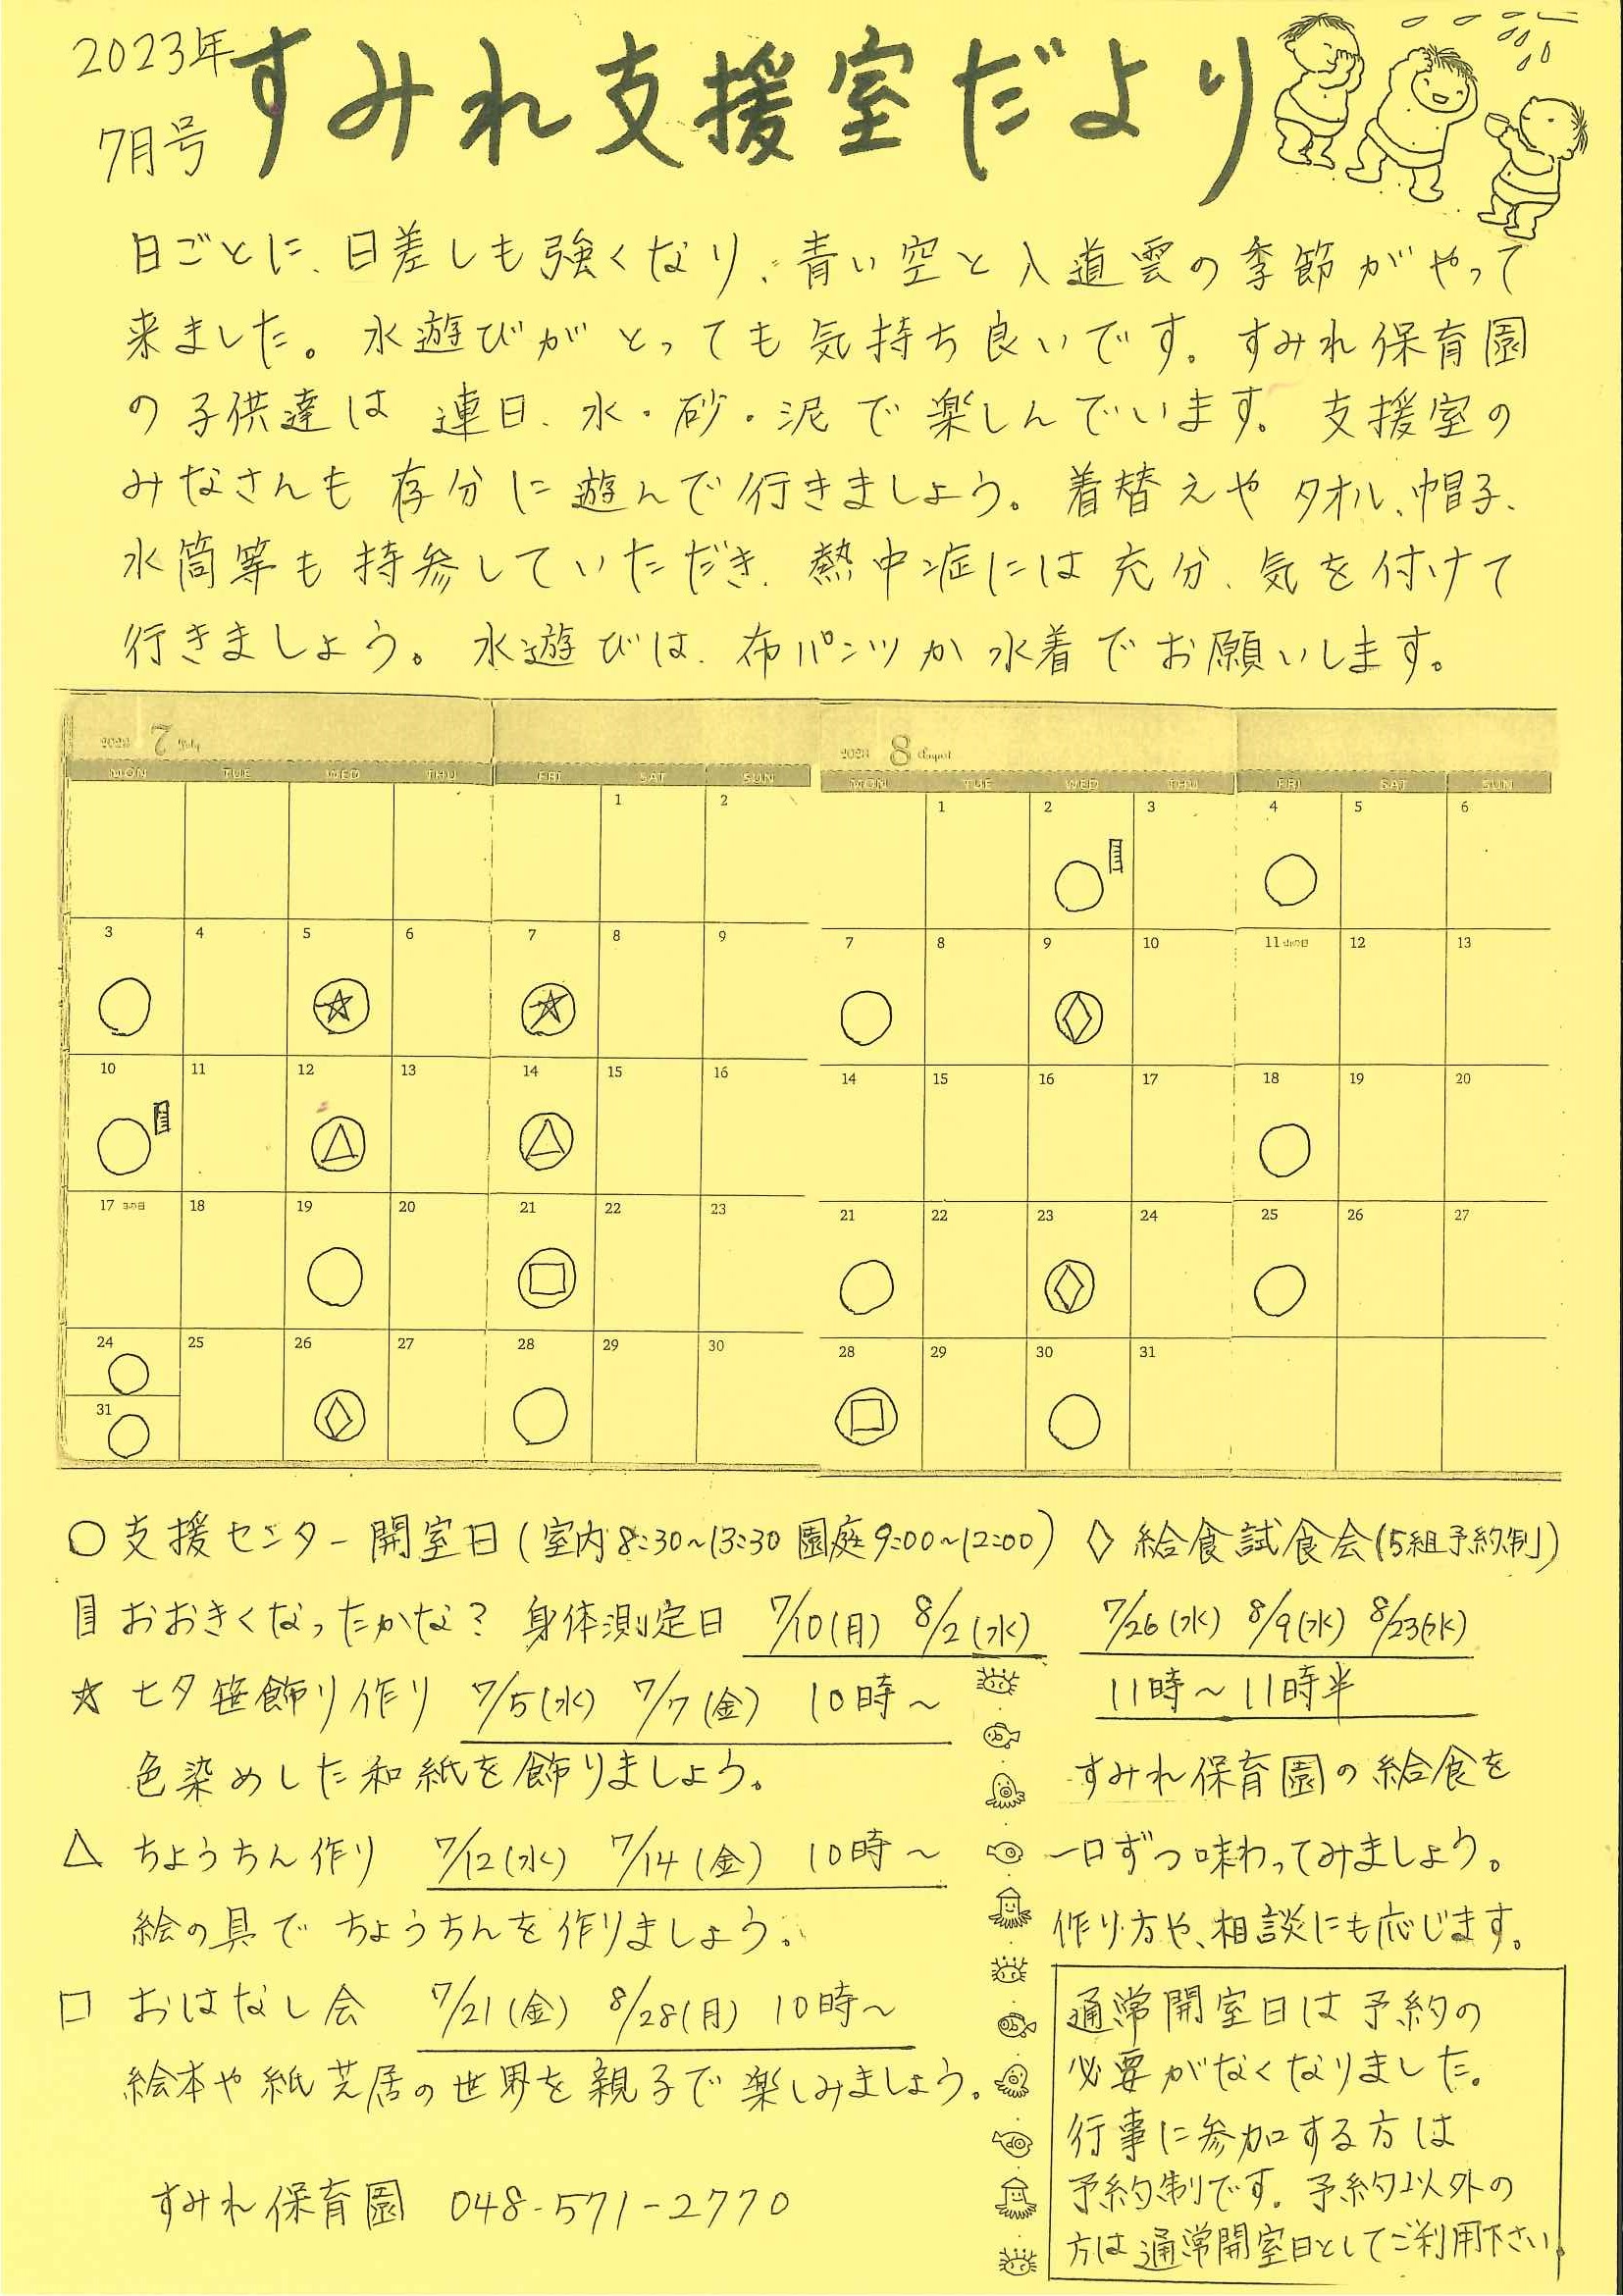 2023年
7月号
すみれ支援室だより
日ごとに、日差しも強くなり、青い空と入道雲の季節がやって
来ました。水遊びがとっても気持ち良いです。すみれ保育園
の子供達は連日、水・砂・泥で楽しんでいます。支援室の
みなさんも存分に遊んで行きましょう。着替えやタオル、帽子、
水筒等も持参していただき、熱中症には充分、気を付けて
行きましょう。水遊びは、布パンツか水着でお願いします。
2023 7 July
MON TUE WED THU FRI SAT SUN
1 2
3 4 5 6 7 8 9
☆ ☆
10 11 12 13 14 15 16
△ △
17 海の日 18 19 20 21 22 23
□
24 25 26 27 28 29 30
31
◇
2023 8 August
MON TUE WED THU FRI SAT SUN
1 2 3 4 5 6
7 8 9 10 11 山の日 12 13
◇
14 15 16 17 18 19 20
21 22 23 24 25 26 27
◇
28 29 30 31
□
○ 支援センター開室日(室内8:30~13:30 園庭9:00~12:00)
おおきくなったかな? 身体測定日 7/10(月) 8/2(水)
☆ 七夕笹飾り作り 7/5(水) 7/7(金) 10時~
色染めした和紙を飾りましょう。
△ ちょうちん作り 7/12(水) 7/14(金) 10時~
絵の具でちょうちんを作りましょう。
□ おはなし会 7/21(金) 8/28(月) 10時~
絵本や紙芝居の世界を親子で楽しみましょう。
すみれ保育園 048-571-2770
◇ 給食試食会(5組予約制)
7/26(水) 8/9(水) 8/23(水)
11時~11時半
すみれ保育園の給食を
一口ずつ味わってみましょう。
作り方や、相談にも応じます。
通常開室日は予約の
必要がなくなりました。
行事に参加する方は
予約制です。予約以外の
方は通常開室日としてご利用下さい。